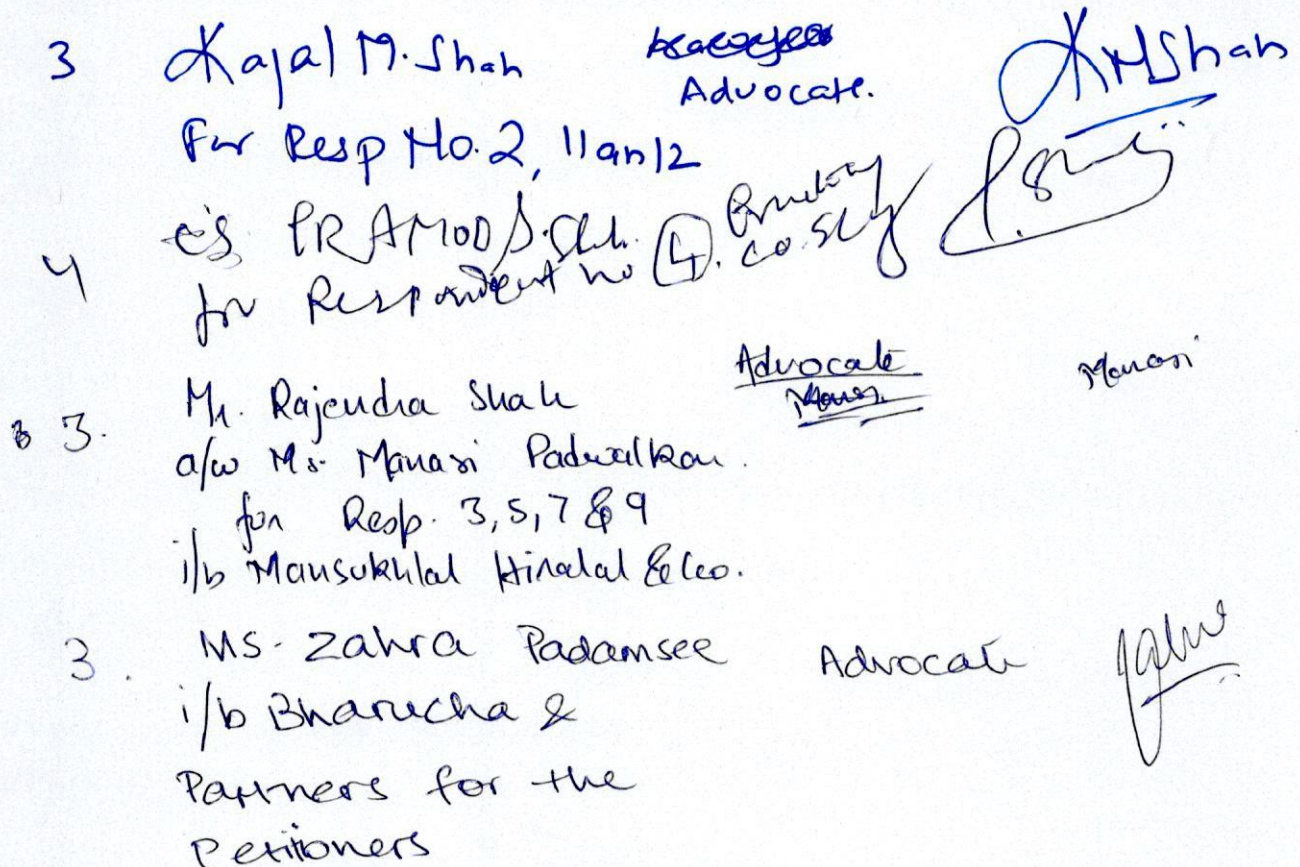 3 Kajal M. Shah Advocate. KMShah
For Resp No. 2, 11 an 12
4 CS PRAMOD S. Shah.
for Respondent no (4).
3. Mr. Rajendra Shah Advocate Manasi
a/w Ms. Manasi Padwalkar.
for Resp. 3, 5, 7 & 9
i/b Mansukhlal Hiralal & Co.
3. Ms. Zahra Padamsee Advocate
i/b Bharucha &
Partners for the
Petitioners